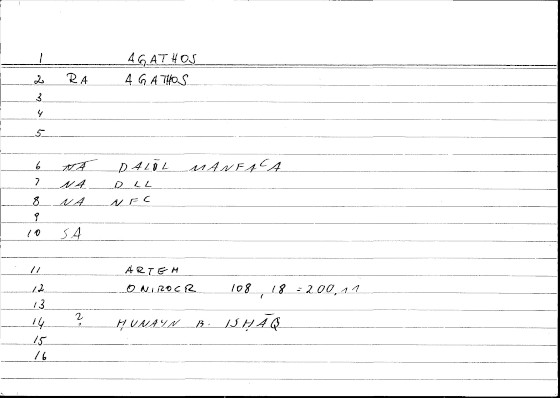 1 AGATHOS
2 RA AGATHOS
3
4
5
6 NA DALĪL MANFAꜤA
7 NA DLL
8 NA NFꜤ
9
10 SA
11 ARTEM
12 ONIROCR 108,18 = 200,11
13
14 ? ḤUNAYN B. ISḤĀQ
15
16